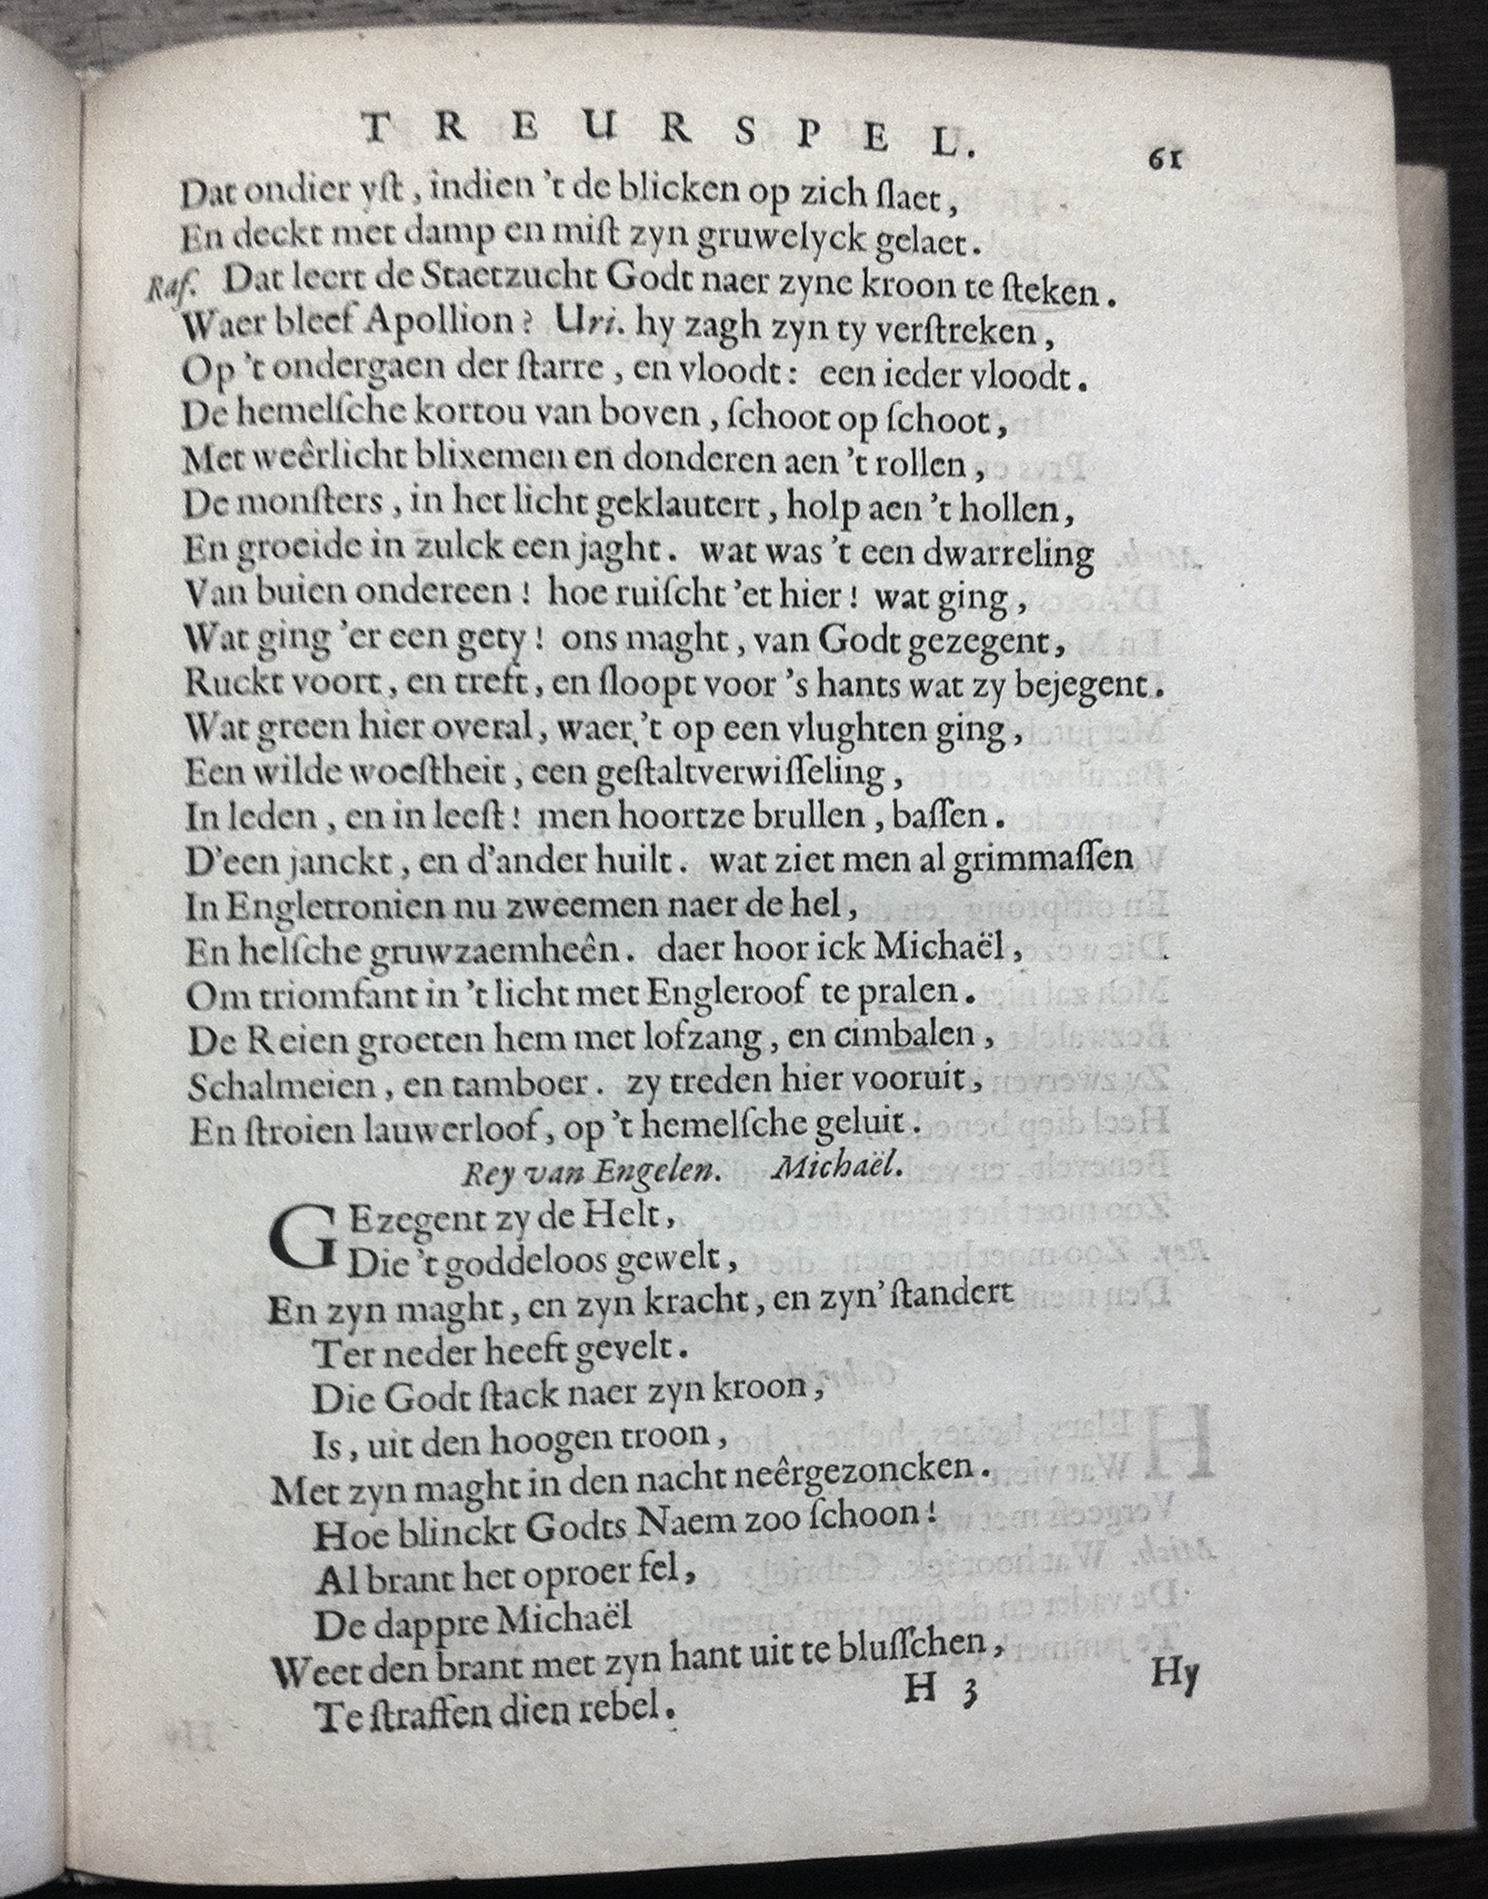 TREURSPEL. 61
Dat ondier yſt, indien 't de blicken op zich ſlaet,
En deckt met damp en miſt zyn gruwelyck gelaet.
Raf. Dat leert de Staetzucht Godt naer zyne kroon te ſteken.
Waer bleef Apollion? Uri. hy zagh zyn ty verſtreken,
Op 't ondergaen der ſtarre, en vloodt: een ieder vloodt.
De hemelſche kortou van boven, ſchoot op ſchoot,
Met weêrlicht blixemen en donderen aen 't rollen,
De monſters, in het licht geklautert, holp aen 't hollen,
En groeide in zulck een jaght. wat was 't een dwarreling
Van buien ondereen! hoe ruiſcht 'et hier! wat ging,
Wat ging 'er een gety! ons maght, van Godt gezegent,
Ruckt voort, en treft, en ſloopt voor 's hants wat zy bejegent.
Wat green hier overal, waer 't op een vlughten ging,
Een wilde woeſtheit, een geſtaltverwiſſeling,
In leden, en in leeſt! men hoortze brullen, baſſen.
D'een janckt, en d'ander huilt. wat ziet men al grimmaſſen
In Engletronien nu zweemen naer de hel,
En helſche gruwzaemheên. daer hoor ick Michaël,
Om triomfant in 't licht met Engleroof te pralen.
De Reien groeten hem met lofzang, en cimbalen,
Schalmeien, en tamboer. zy treden hier vooruit,
En ſtroien lauwerloof, op 't hemelſche geluit.
Rey van Engelen. Michaël.
GEzegent zy de Helt,
Die 't goddeloos gewelt,
En zyn maght, en zyn kracht, en zyn' ſtandert
Ter neder heeft gevelt.
Die Godt ſtack naer zyn kroon,
Is, uit den hoogen troon,
Met zyn maght in den nacht neêrgezoncken.
Hoe blinckt Godts Naem zoo ſchoon!
Al brant het oproer fel,
De dappre Michaël
Weet den brant met zyn hant uit te bluſſchen,
Te ſtraffen dien rebel.
H 3 Hy